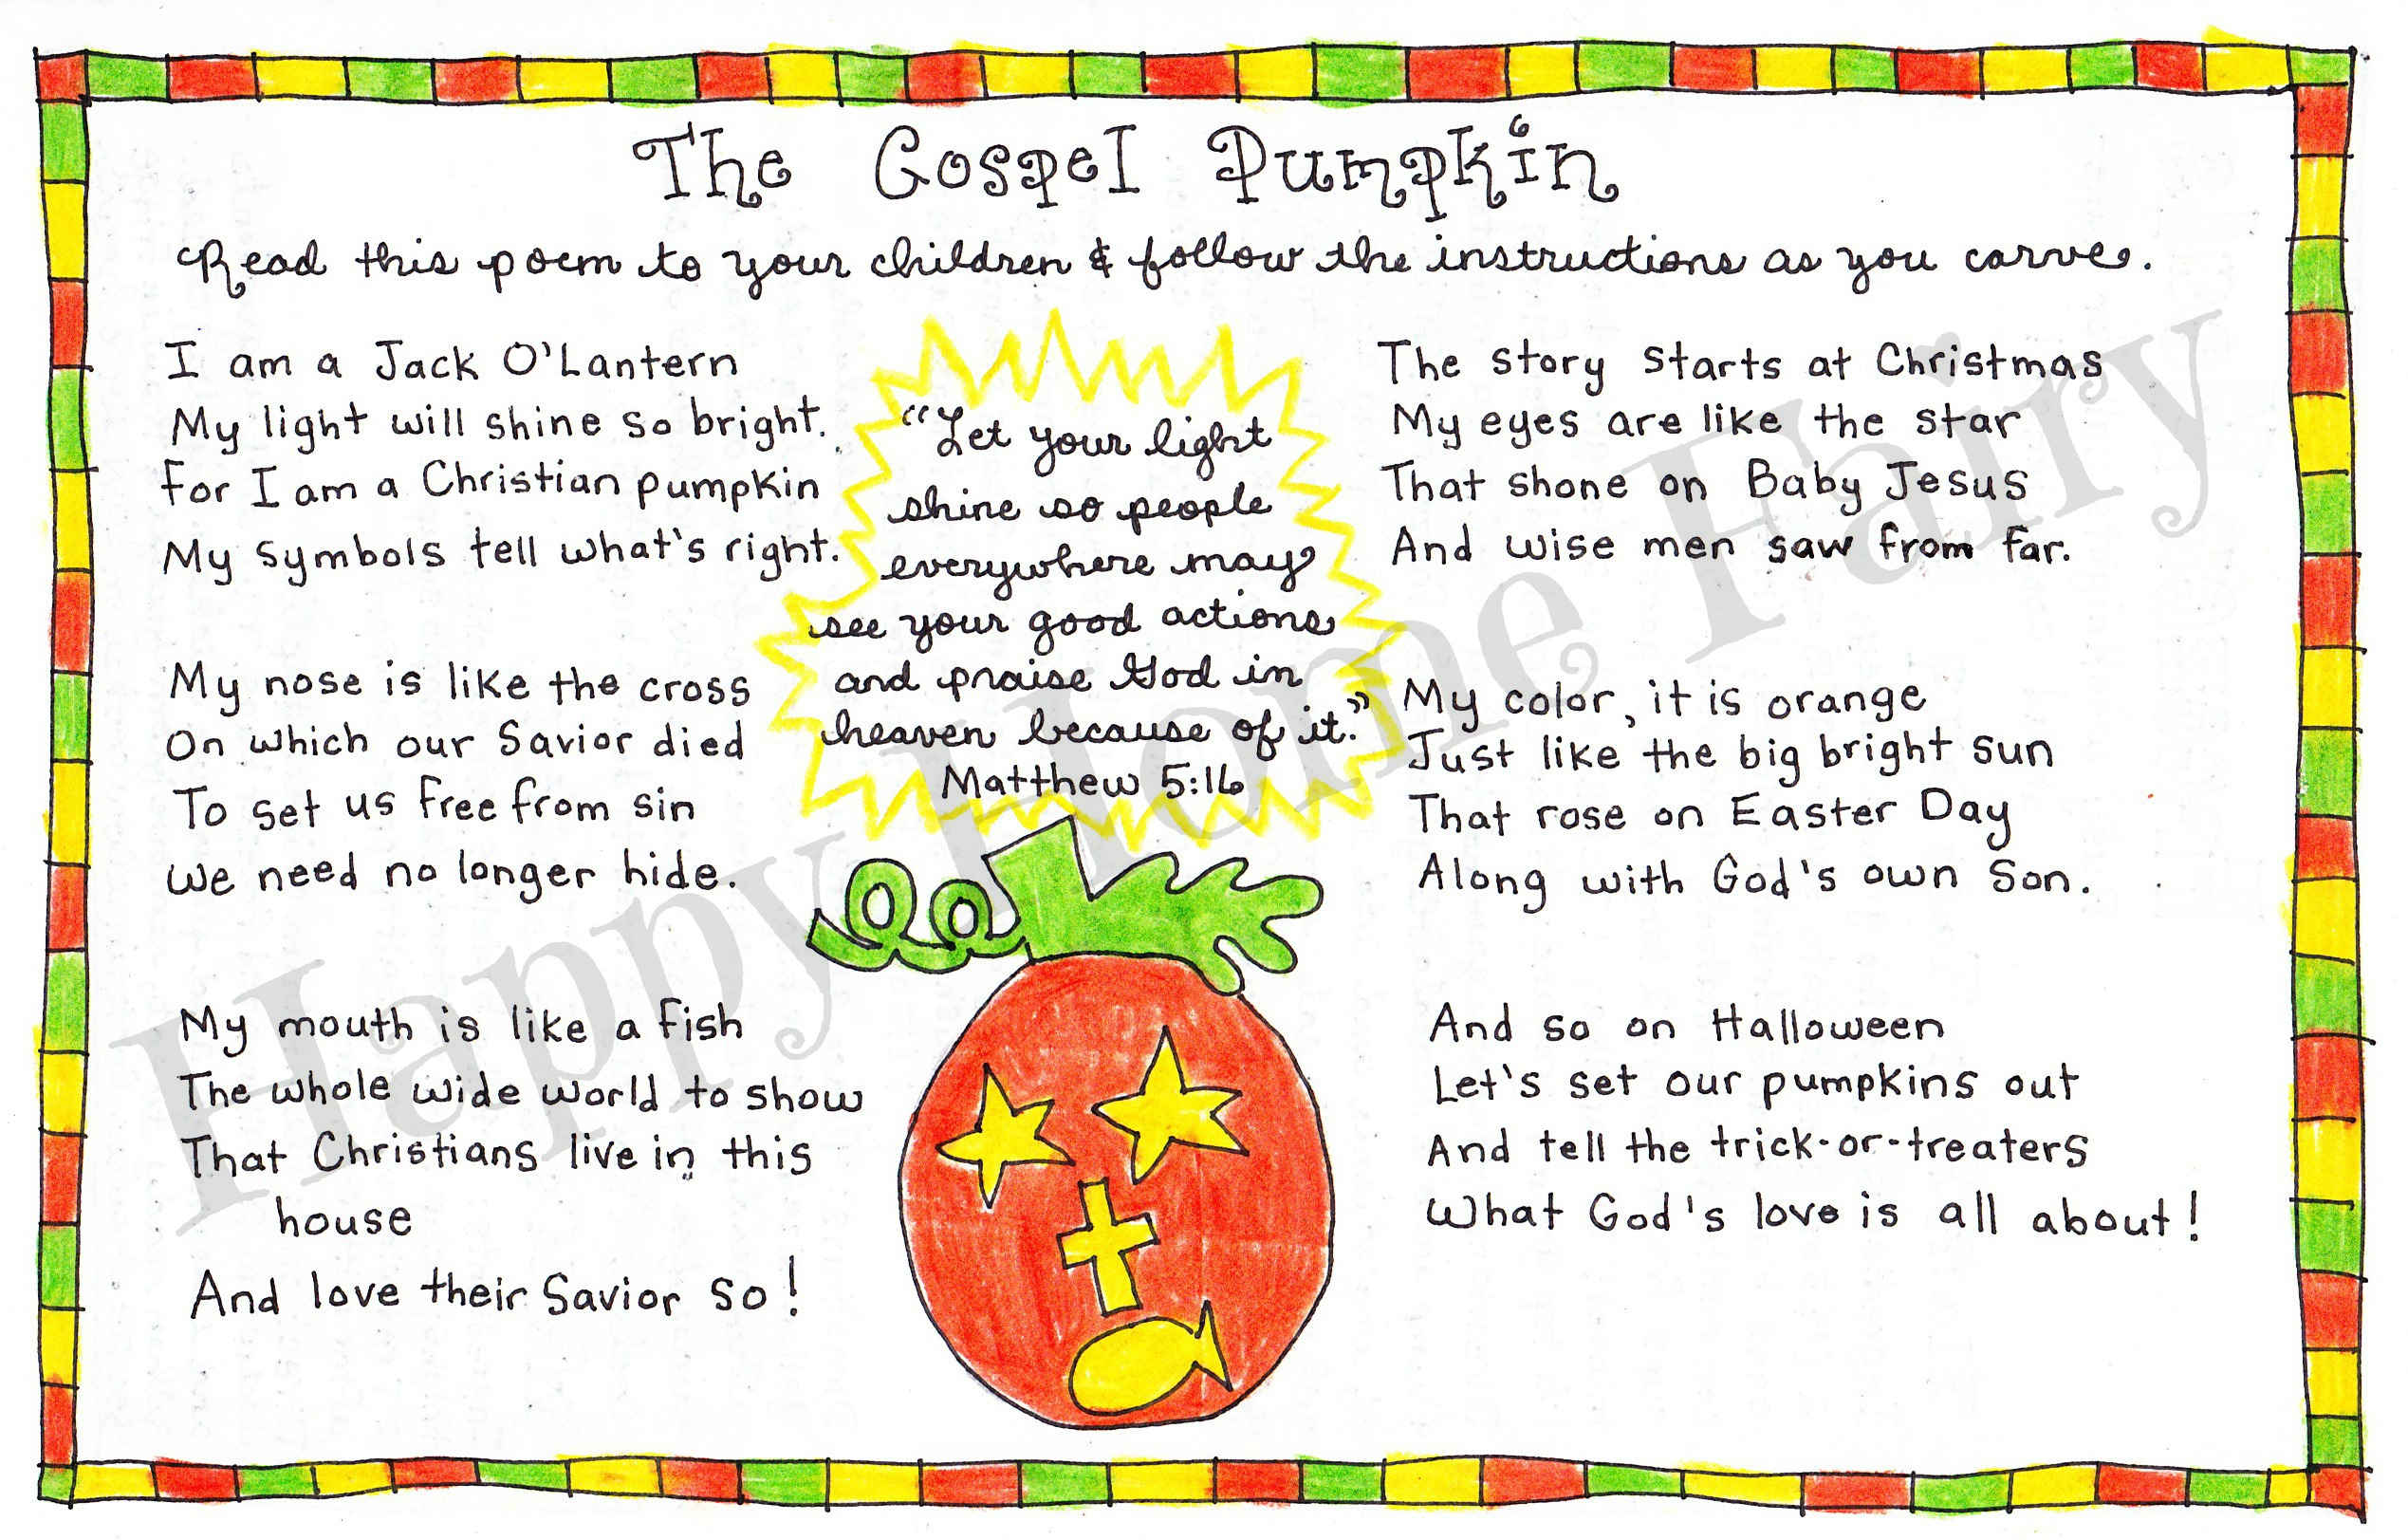 The Gospel Pumpkin
Read this poem to your children & follow the instructions as you carve.
I am a Jack O'Lantern
My light will shine so bright.
For I am a Christian pumpkin
My symbols tell what's right.
The story starts at Christmas
My eyes are like the star
That shone on Baby Jesus
And wise men saw from far.
My nose is like the cross
On which our Savior died
To set us free from sin
We need no longer hide.
My color, it is orange
Just like the big bright sun
That rose on Easter Day
Along with God's own Son.
My mouth is like a fish
The whole wide world to show
That Christians live in this
house
And love their Savior so!
And so on Halloween
Let's set our pumpkins out
And tell the trick-or-treaters
What God's love is all about!
"Let your light
shine so people
everywhere may
see your good actions
and praise God in
heaven because of it."
Matthew 5:16
Happy Home Fairy